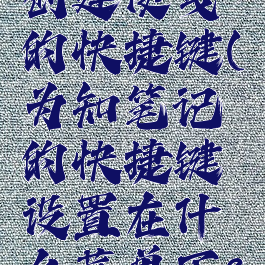 创建便笺
的快捷键(
为知笔记
的快捷键
设置在什